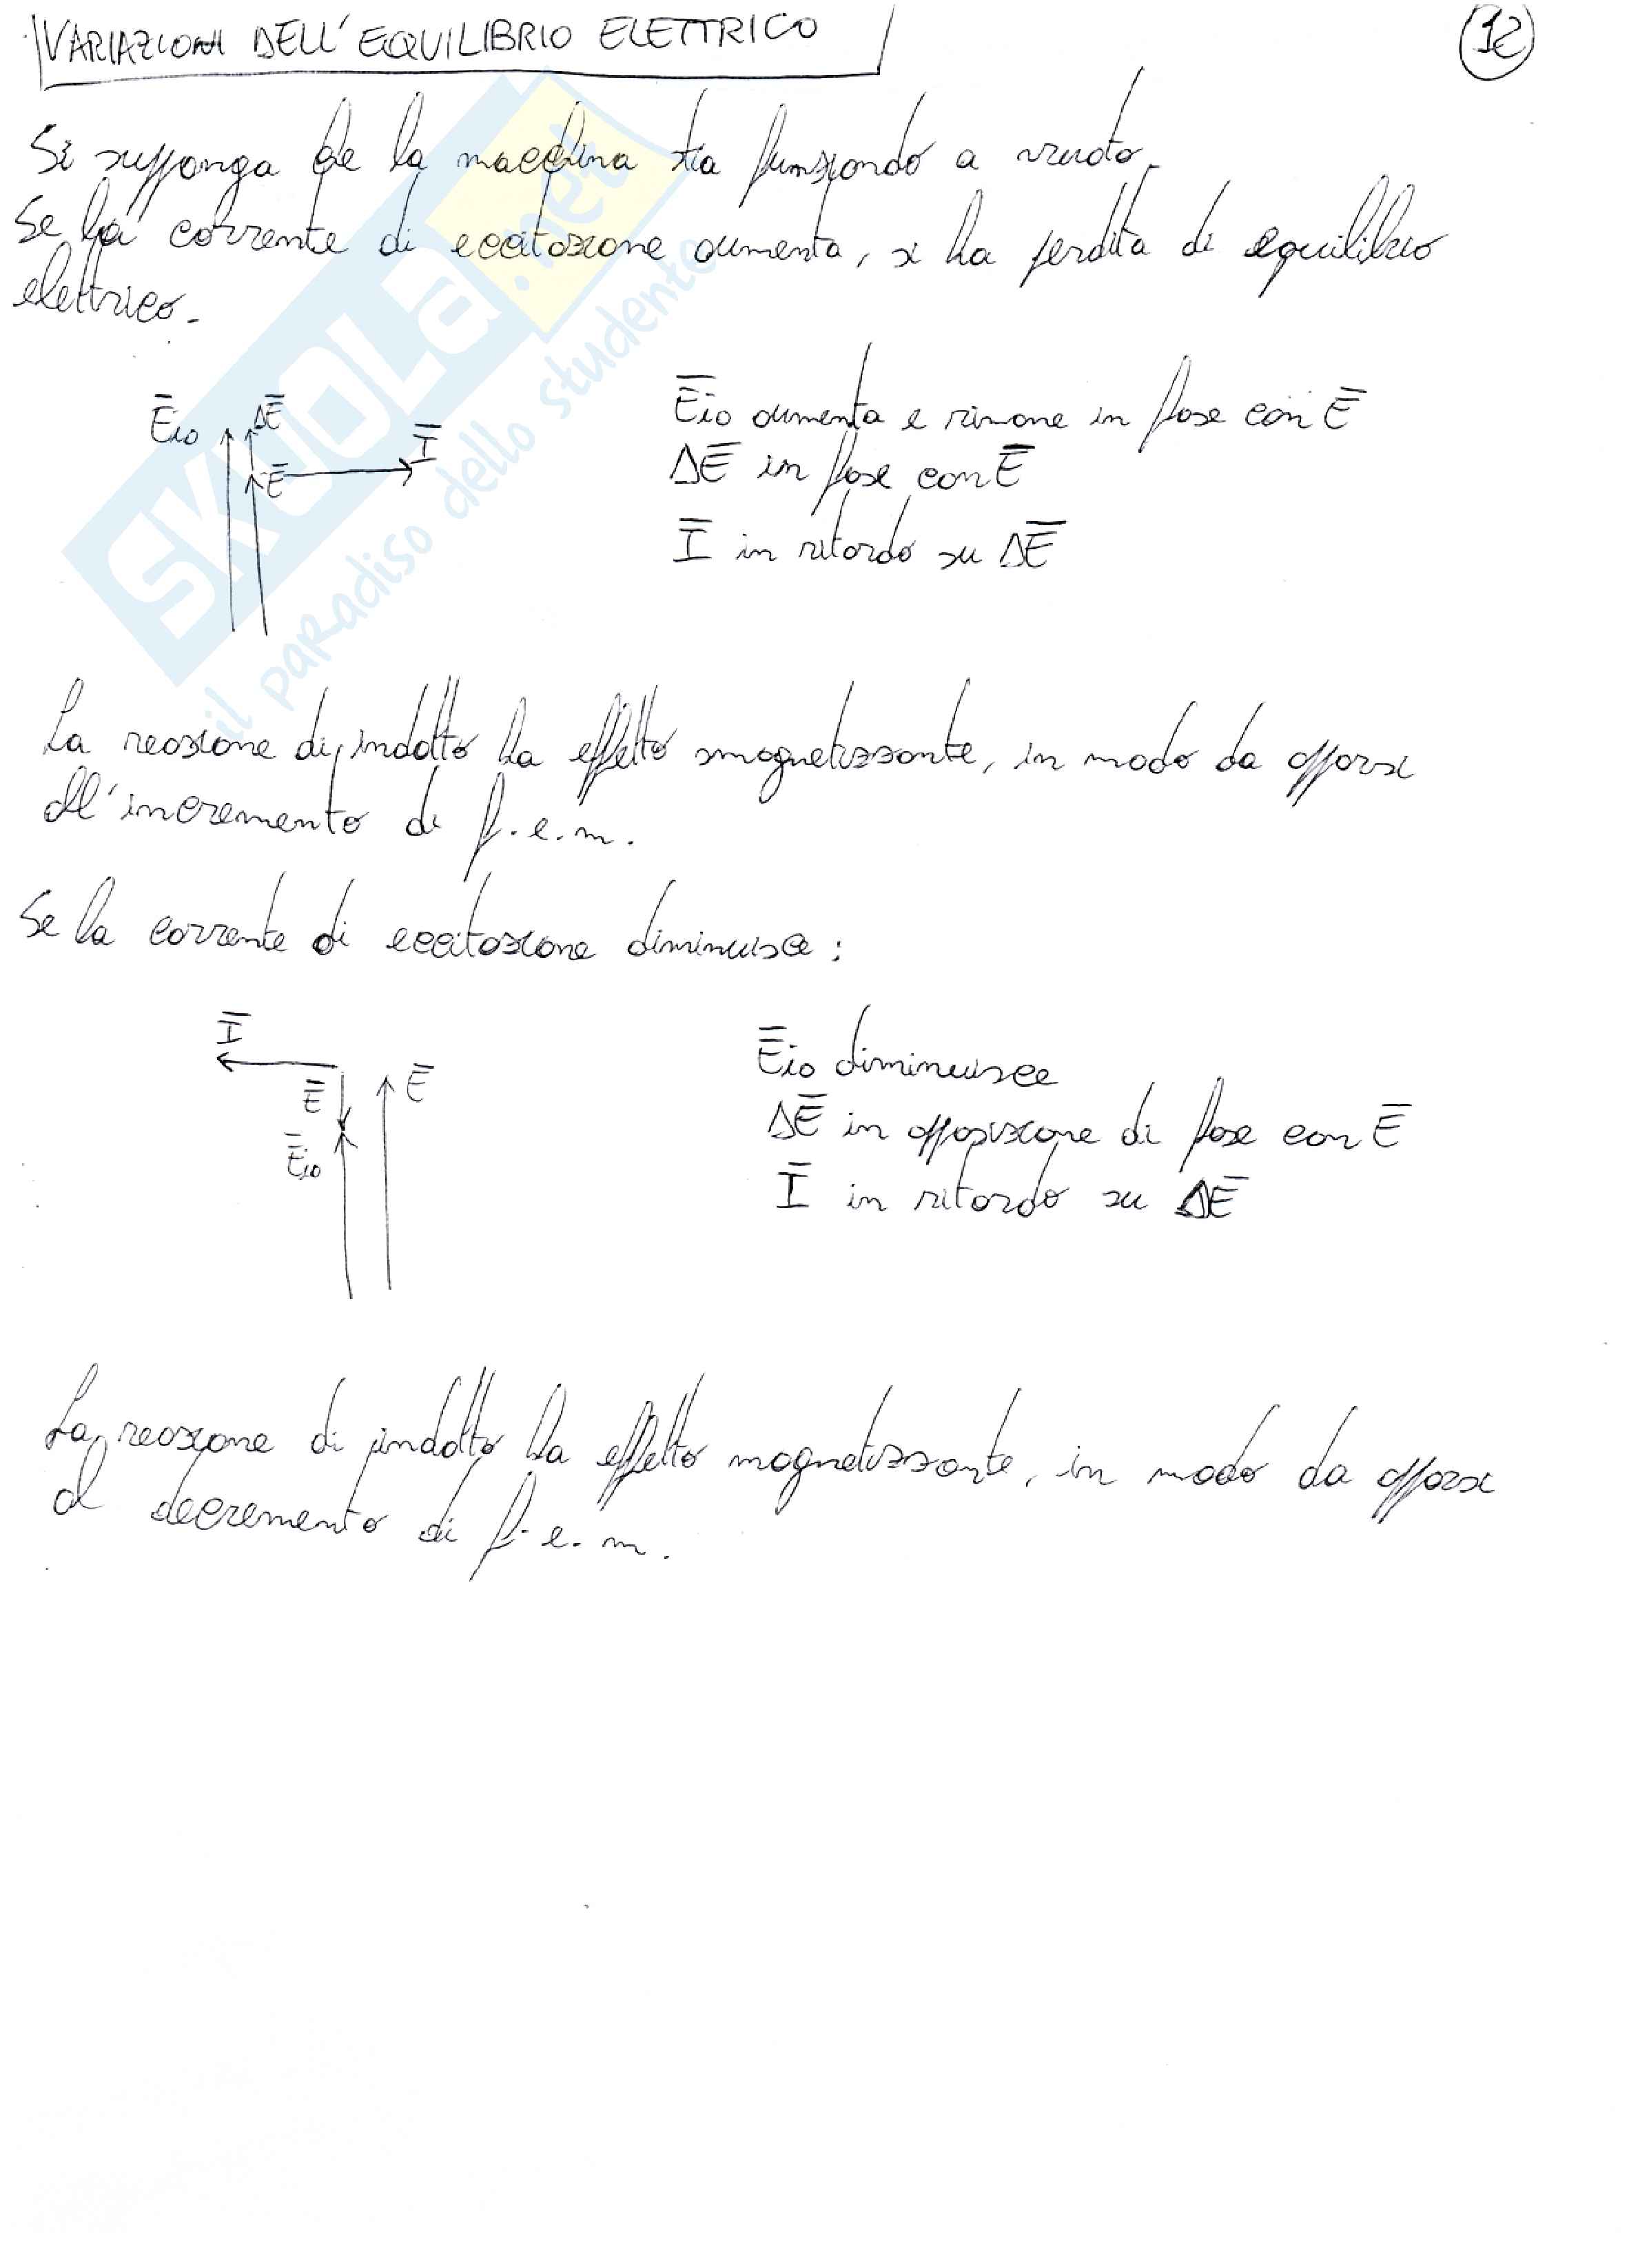 VARIAZIONI DELL'EQUILIBRIO ELETTRICO
12
Si supponga che la macchina sia funzionando a vuoto.
Se la corrente di eccitazione aumenta, si ha perdita di equilibrio
elettrico.
E̅io
ΔE̅
E̅
I̅
E̅io aumenta e rimane in fase con E̅
ΔE̅ in fase con E̅
I̅ in ritardo su ΔE̅
La reazione di indotto ha effetto smagnetizzante, in modo da opporsi
all'incremento di f.e.m.
Se la corrente di eccitazione diminuisce:
I̅
E̅
E̅
E̅io
E̅io diminuisce
ΔE̅ in opposizione di fase con E̅
I̅ in ritardo su ΔE̅
La reazione di indotto ha effetto magnetizzante, in modo da opporsi
al decremento di f.e.m.
SKUOLA.net
il paradiso dello studente